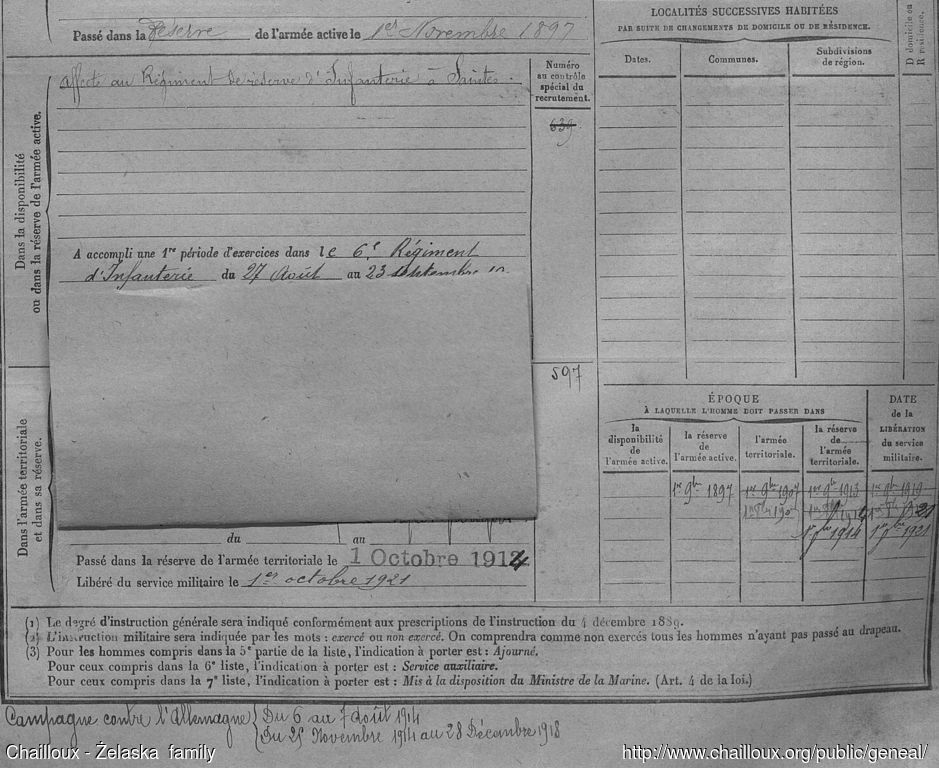 Passé dans la Réserve de l'armée active le 1er Novembre 1897
Affecté au Régiment de réserve d'Infanterie à Saintes.
Dans la disponibilité
ou dans la réserve de l'armée active.
Numéro
au contrôle
spécial du
recrutement.
639
A accompli une 1re période d'exercices dans le 6e Régiment
d'Infanterie du 27 Août au 23 septembre
597
Dans l'armée territoriale
et dans sa réserve.
du au
Passé dans la réserve de l'armée territoriale le 1 Octobre 1914
Libéré du service militaire le 1er octobre 1921
LOCALITÉS SUCCESSIVES HABITÉES
PAR SUITE DE CHANGEMENTS DE DOMICILE OU DE RÉSIDENCE.
Dates. Communes. Subdivisions
de région.
D domicile ou
R résidence.
ÉPOQUE
À LAQUELLE L'HOMME DOIT PASSER DANS
la
disponibilité
de
l'armée active.
la réserve
de
l'armée active.
l'armée
territoriale.
la réserve
de
l'armée
territoriale.
DATE
de la
LIBÉRATION
du service
militaire.
1er 9bre 1897 1er 9bre 1907 1er 9bre 1913 1er 9bre 1919
1er 8bre 1914 1er 8bre 1921
(1) Le degré d'instruction générale sera indiqué conformément aux prescriptions de l'instruction du 4 décembre 1889.
(2) L'instruction militaire sera indiquée par les mots : exercé ou non exercé. On comprendra comme non exercés tous les hommes n'ayant pas passé au drapeau.
(3) Pour les hommes compris dans la 5e partie de la liste, l'indication à porter est : Ajourné.
Pour ceux compris dans la 6e liste, l'indication à porter est : Service auxiliaire.
Pour ceux compris dans la 7e liste, l'indication à porter est : Mis à la disposition du Ministre de la Marine. (Art. 4 de la loi.)
Campagne contre l'Allemagne { Du 6 au 7 Août 1914
Du 25 Novembre 1914 au 28 Décembre 1918
Chailloux - Želaska family http://www.chailloux.org/public/geneal/